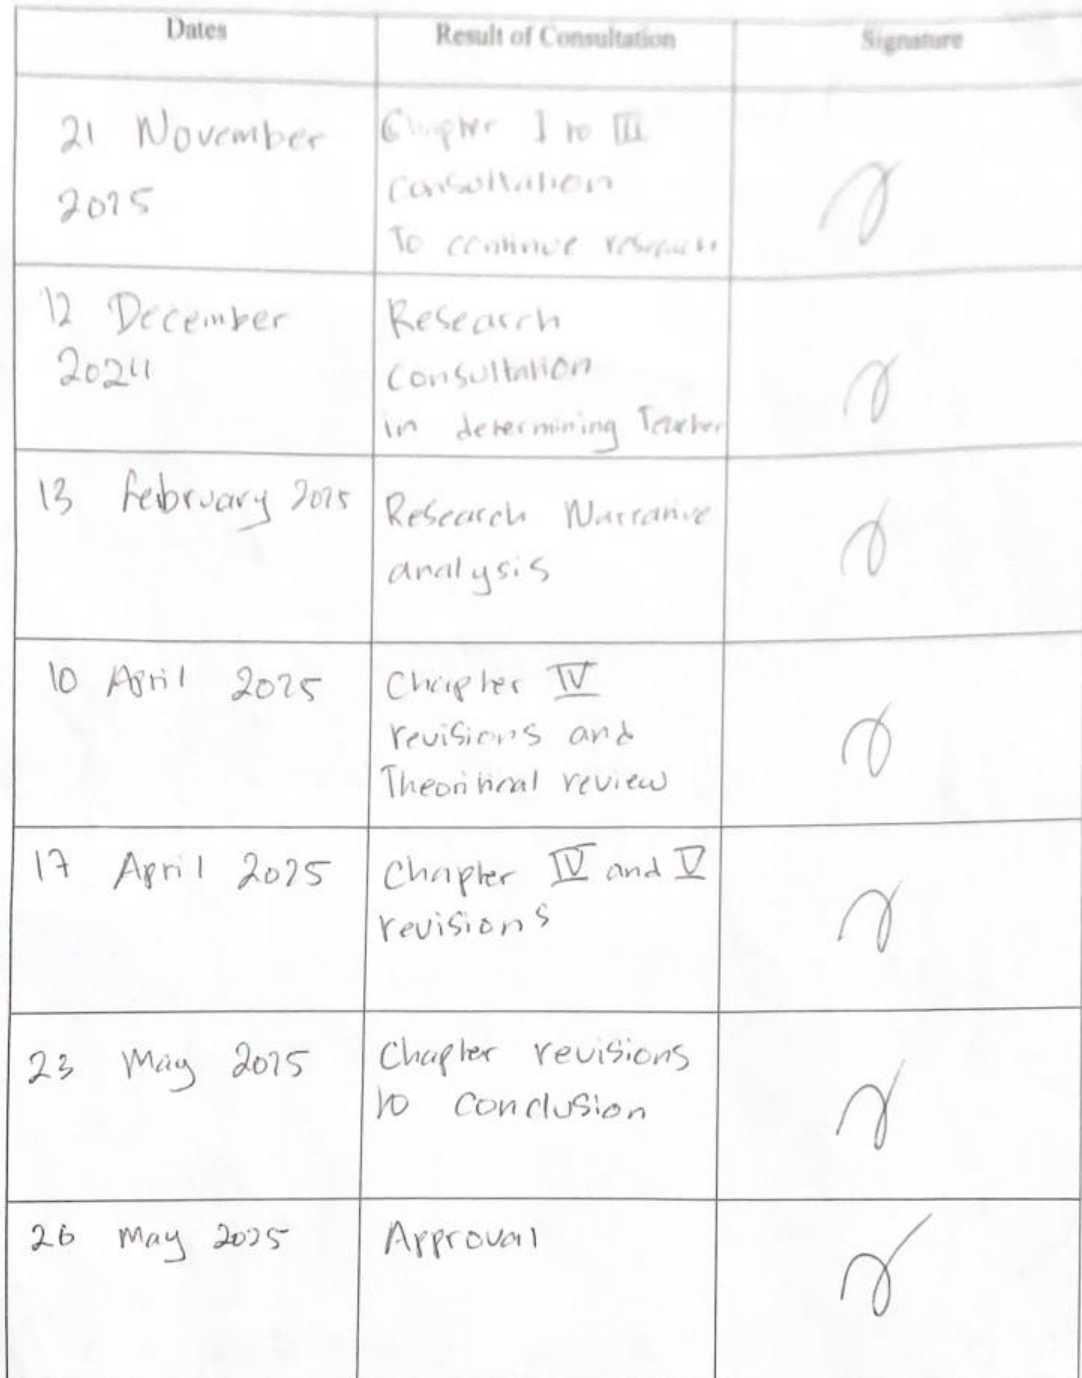 Dates
Result of Consultation
Signature
21 November
2025
Chapter I to III
consultation
To continue research
12 December
2024
Research
consultation
in determining Teacher
13 februrary 2025
Research Narrative
analysis
10 April 2025
Chapter IV
revisions and
Theoritical review
17 April 2025
Chapter IV and V
revisions
23 May 2025
Chapter revisions
to conclusion
26 May 2025
Approval